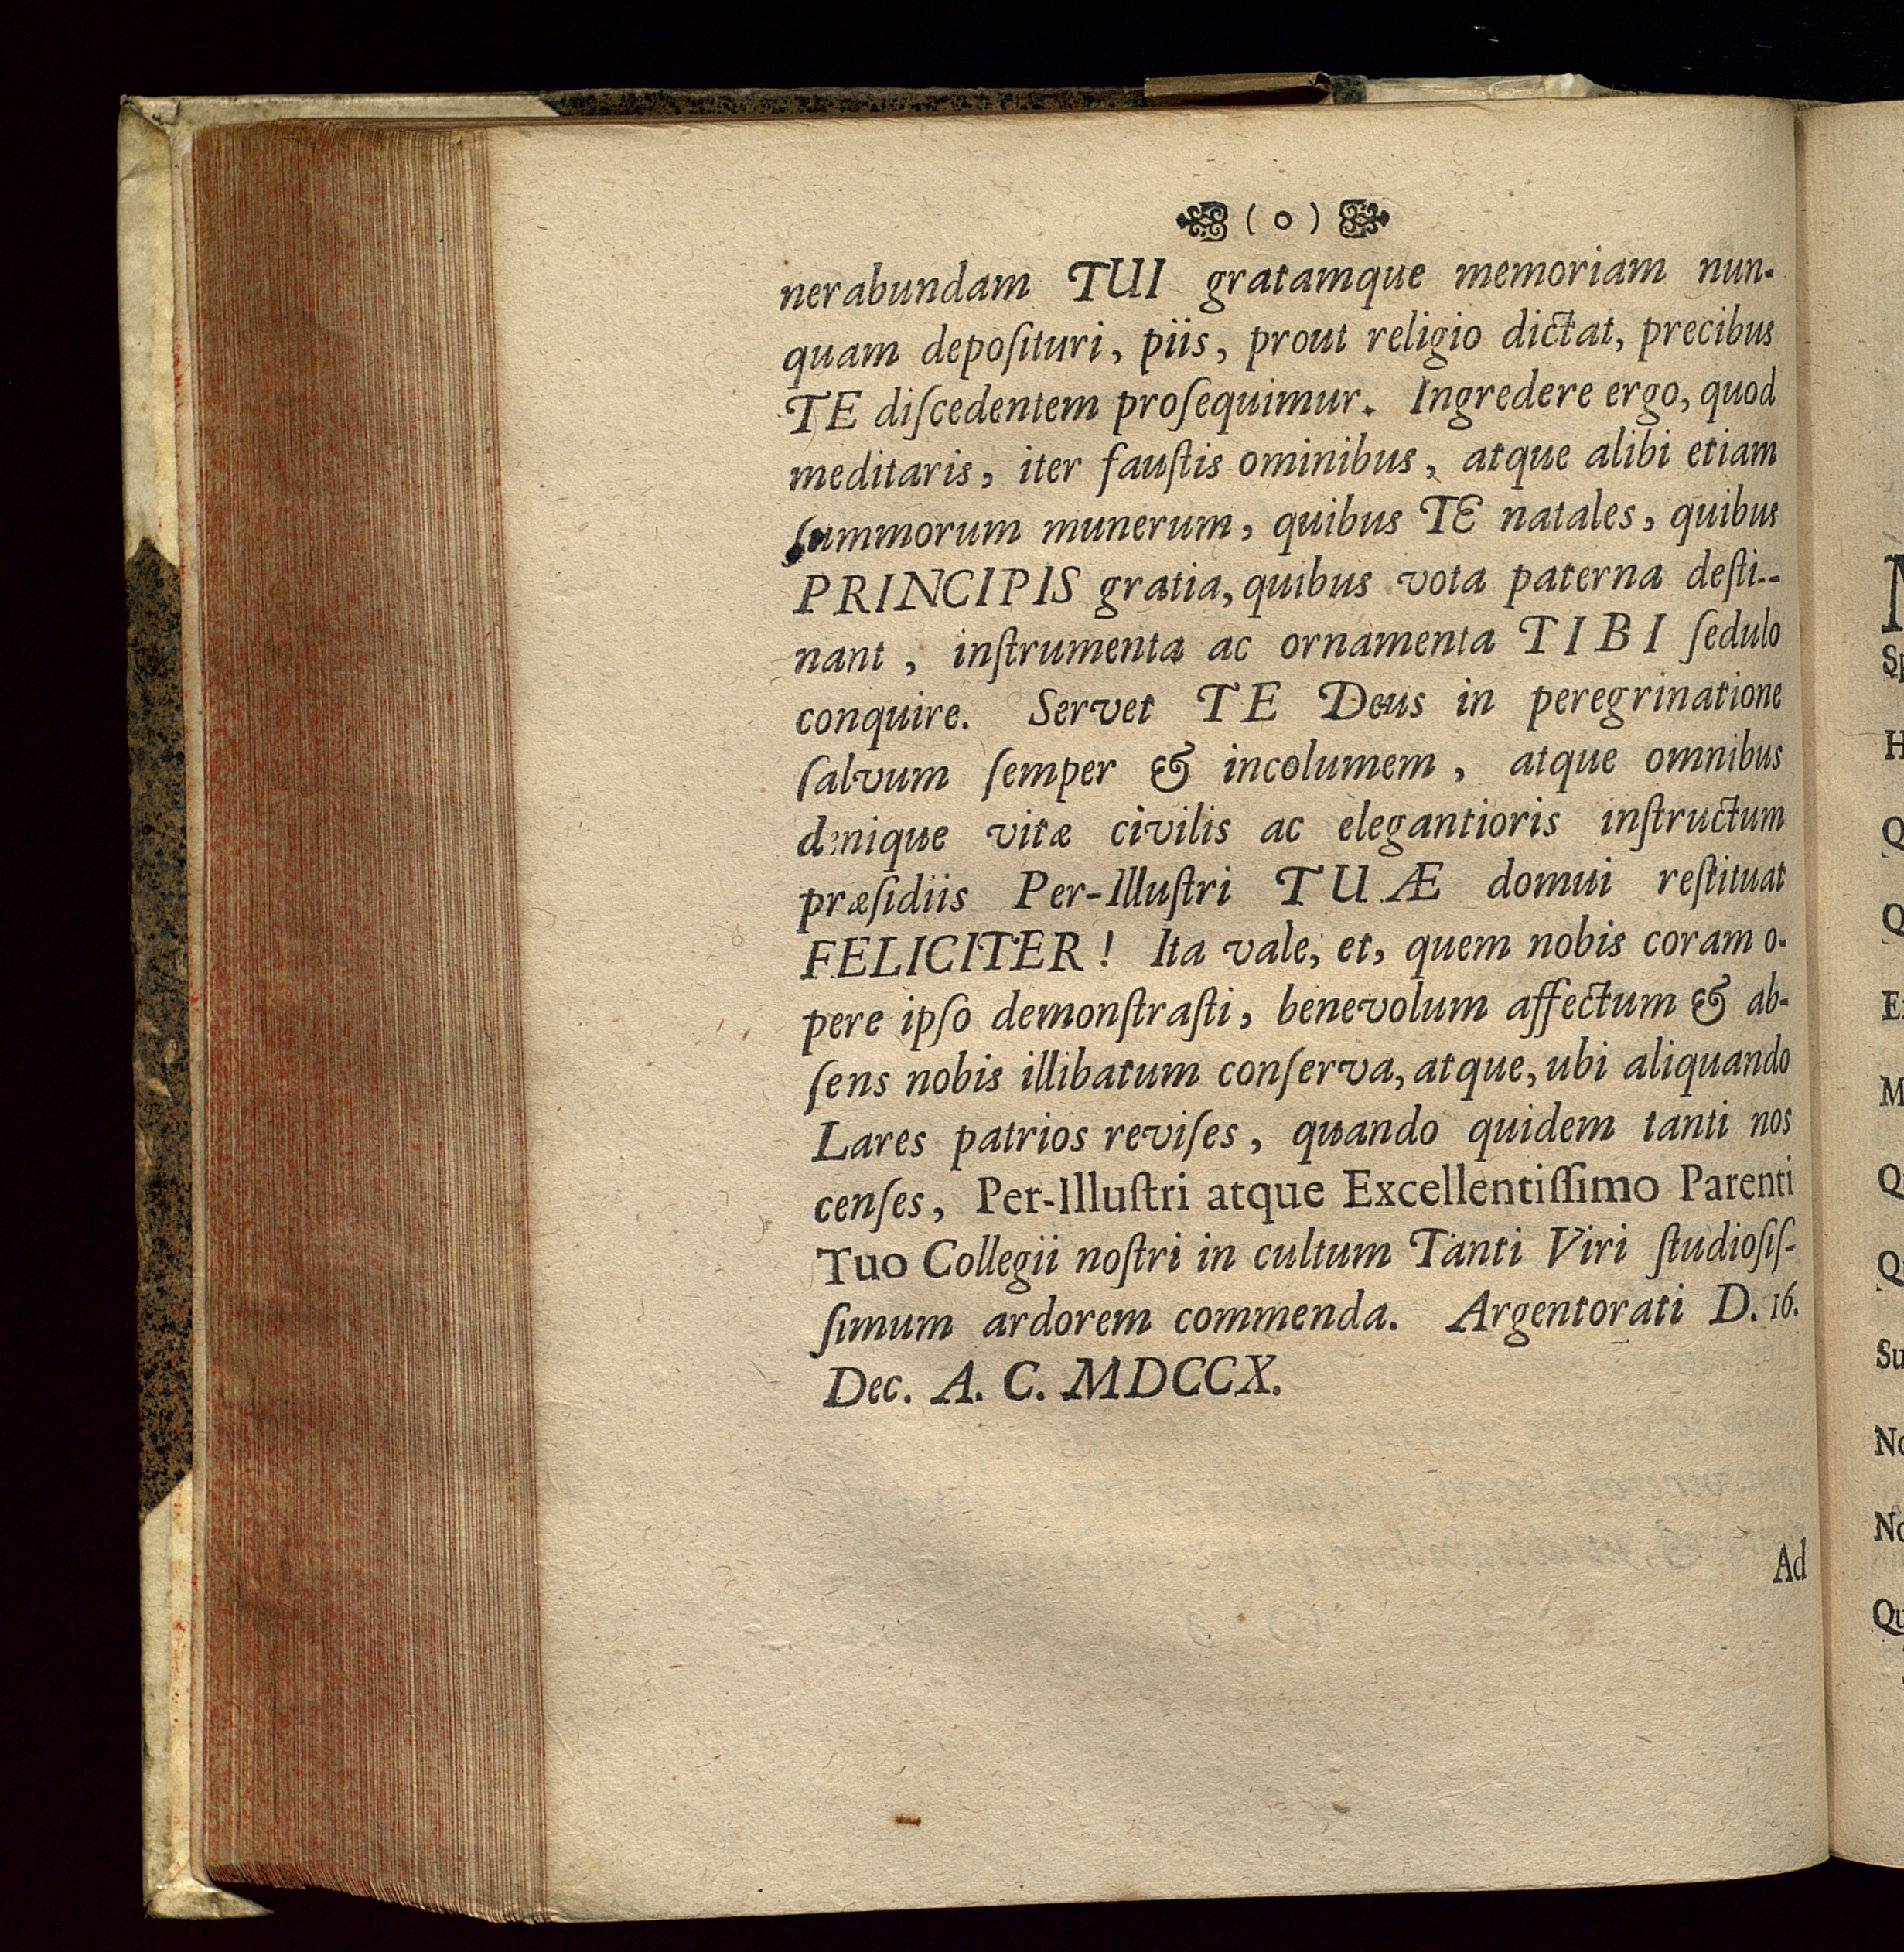 ( o )
nerabundam TUI gratamque memoriam nun-
quam depoſituri, piis, prout religio dictat, precibus
TE diſcedentem proſequimur. Ingredere ergo, quod
meditaris, iter fauſtis ominibus, atque alibi etiam
ſummorum munerum, quibus TE natales, quibus
PRINCIPIS gratia, quibus vota paterna deſti--
nant, inſtrumenta ac ornamenta TIBI ſedulo
conquire. Servet TE Deus in peregrinatione
ſalvum ſemper & incolumem, atque omnibus
denique vitæ civilis ac elegantioris inſtructum
præſidiis Per-Illuſtri TUÆ domui reſtituat
FELICITER! Ita vale, et, quem nobis coram o-
pere ipſo demonſtraſti, benevolum affectum & ab-
ſens nobis illibatum conſerva, atque, ubi aliquando
Lares patrios reviſes, quando quidem tanti nos
cenſes, Per-Illuſtri atque Excellentiſſimo Parenti
Tuo Collegii noſtri in cultum Tanti Viri ſtudioſiſ-
ſimum ardorem commenda. Argentorati D. 16.
Dec. A. C. MDCCX.
Ad